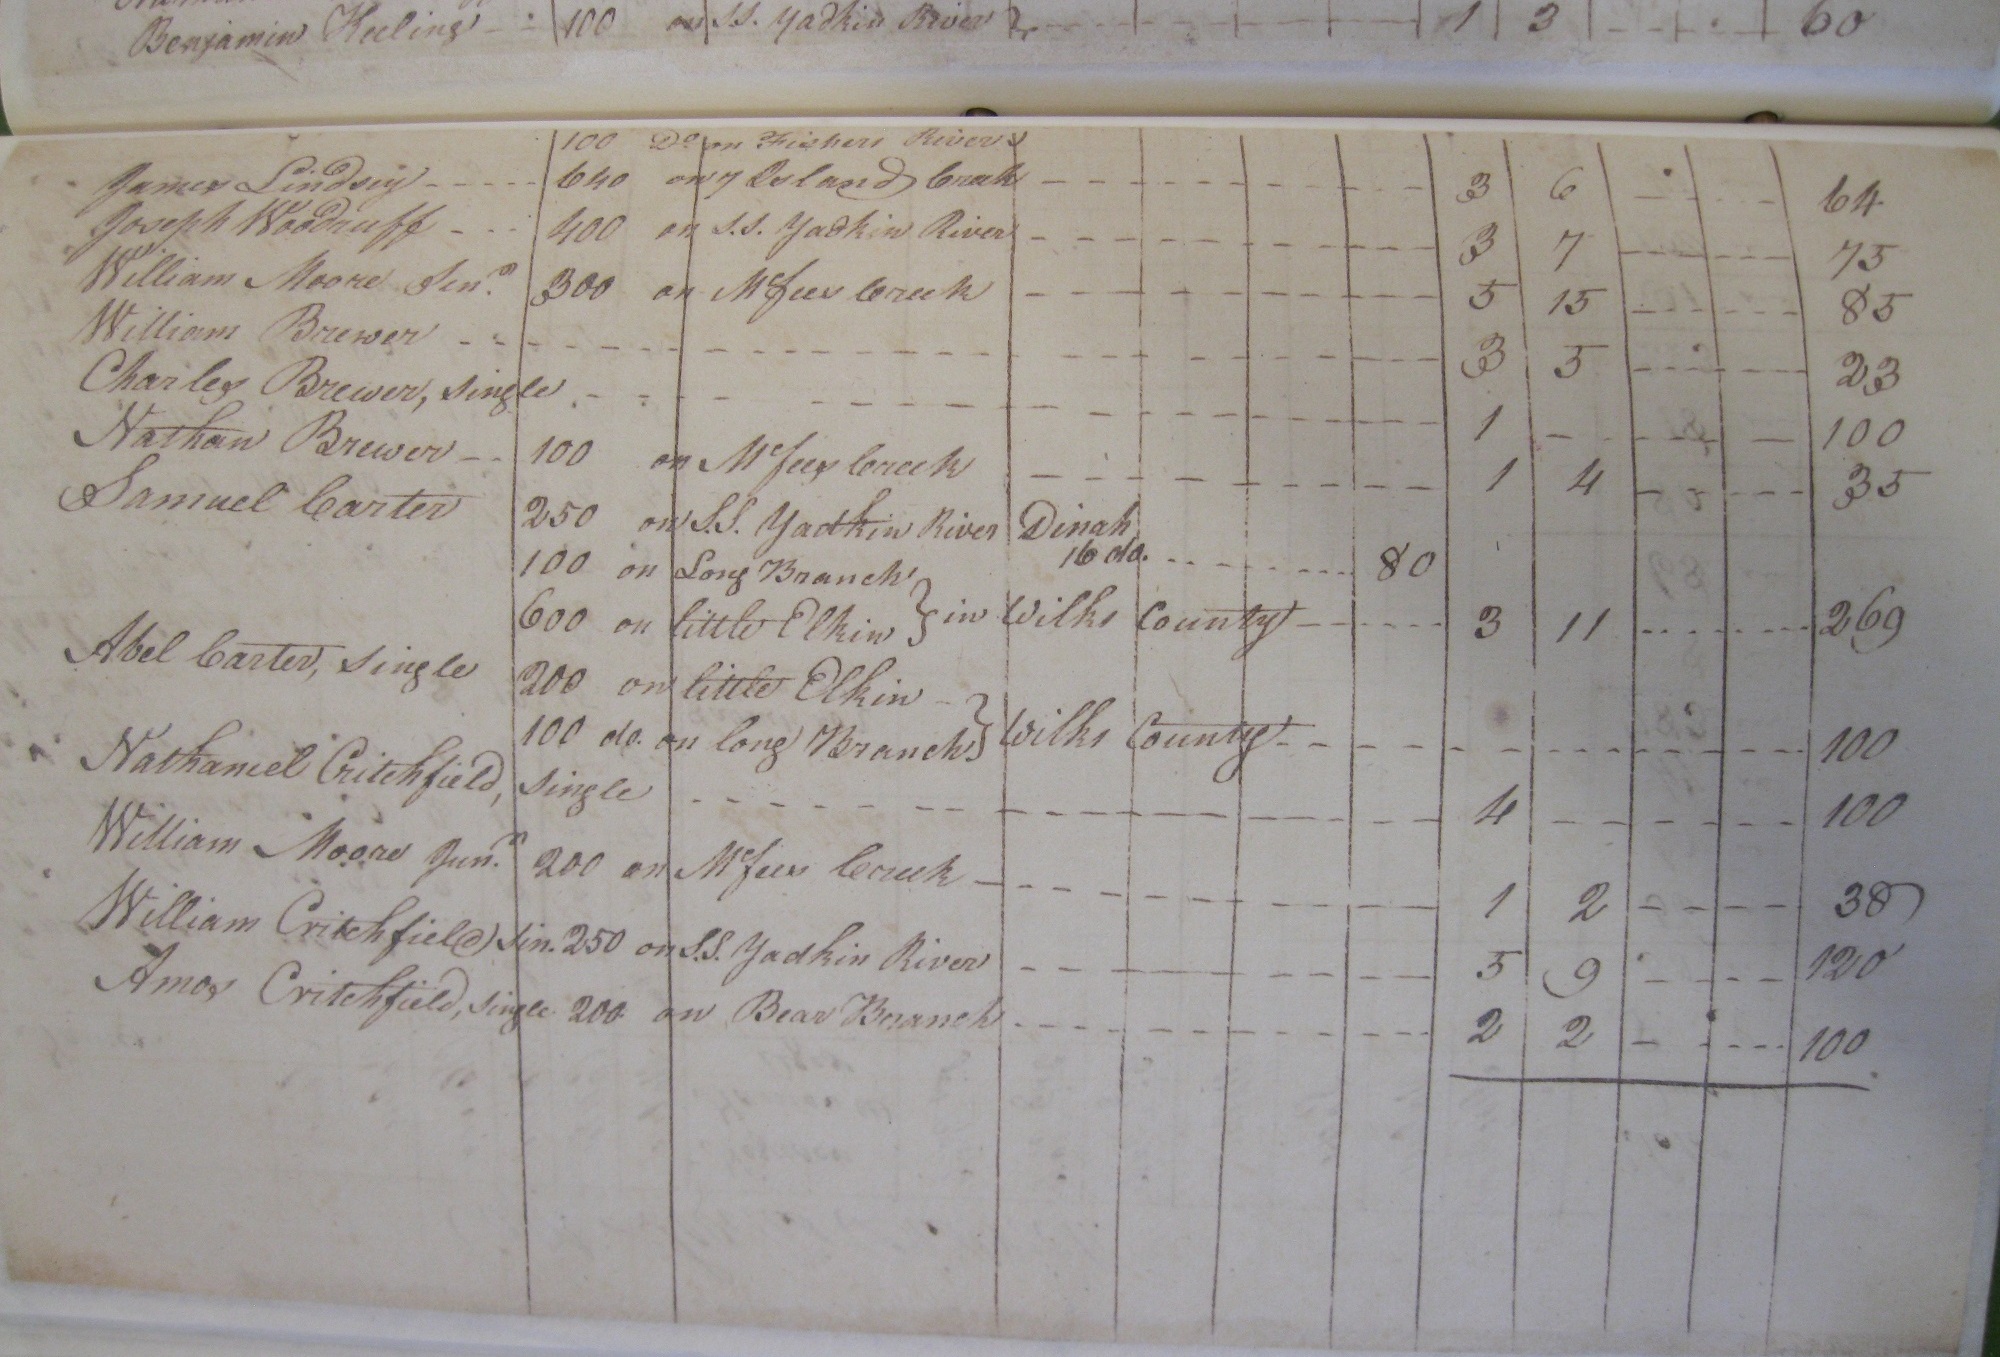 Benjamin Keeling -- 100 on S.S. Yadkin River 1 3 60
100 Do. on Fishers River
James Lindsey 640 on 7 Island Creek 3 6 64
Joseph Woodruff 400 on S.S. Yadkin River 3 7 75
William Moore Senr. 300 on McFees Creek 5 15 85
William Brewer 3 5 23
Charles Brewer, single 1 100
Nathan Brewer 100 on McFees Creek 1 4 35
Samuel Carter 250 on S.S. Yadkin River Dinah
100 on Long Branch 16 do. 80
600 on little Elkin } in Wilks County 3 11 269
Abel Carter, single 200 on little Elkin
100 do. on long Branch } Wilks County 100
Nathaniel Critchfield, single 4 100
William Moore Junr. 200 on McFees Creek 1 2 38
William Critchfield Sin. 250 on S.S. Yadkin River 5 9 120
Amos Critchfield, single 200 on Bear Branch 2 2 100